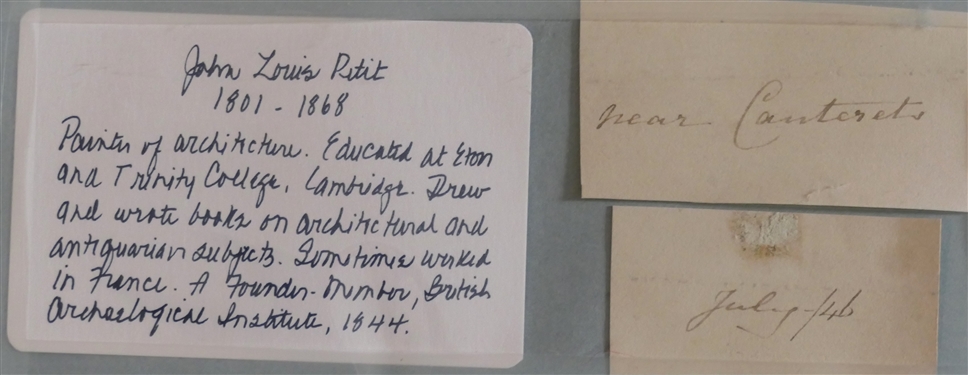 John Louis Petit
1801 - 1868
Painter of architecture. Educated at Eton
and Trinity College, Cambridge. Drew
and wrote books on architectural and
antiquarian subjects. Sometimes worked
in France. A Founder-Member, British
Archaeological Institute, 1844.
near Cauterets
July /46